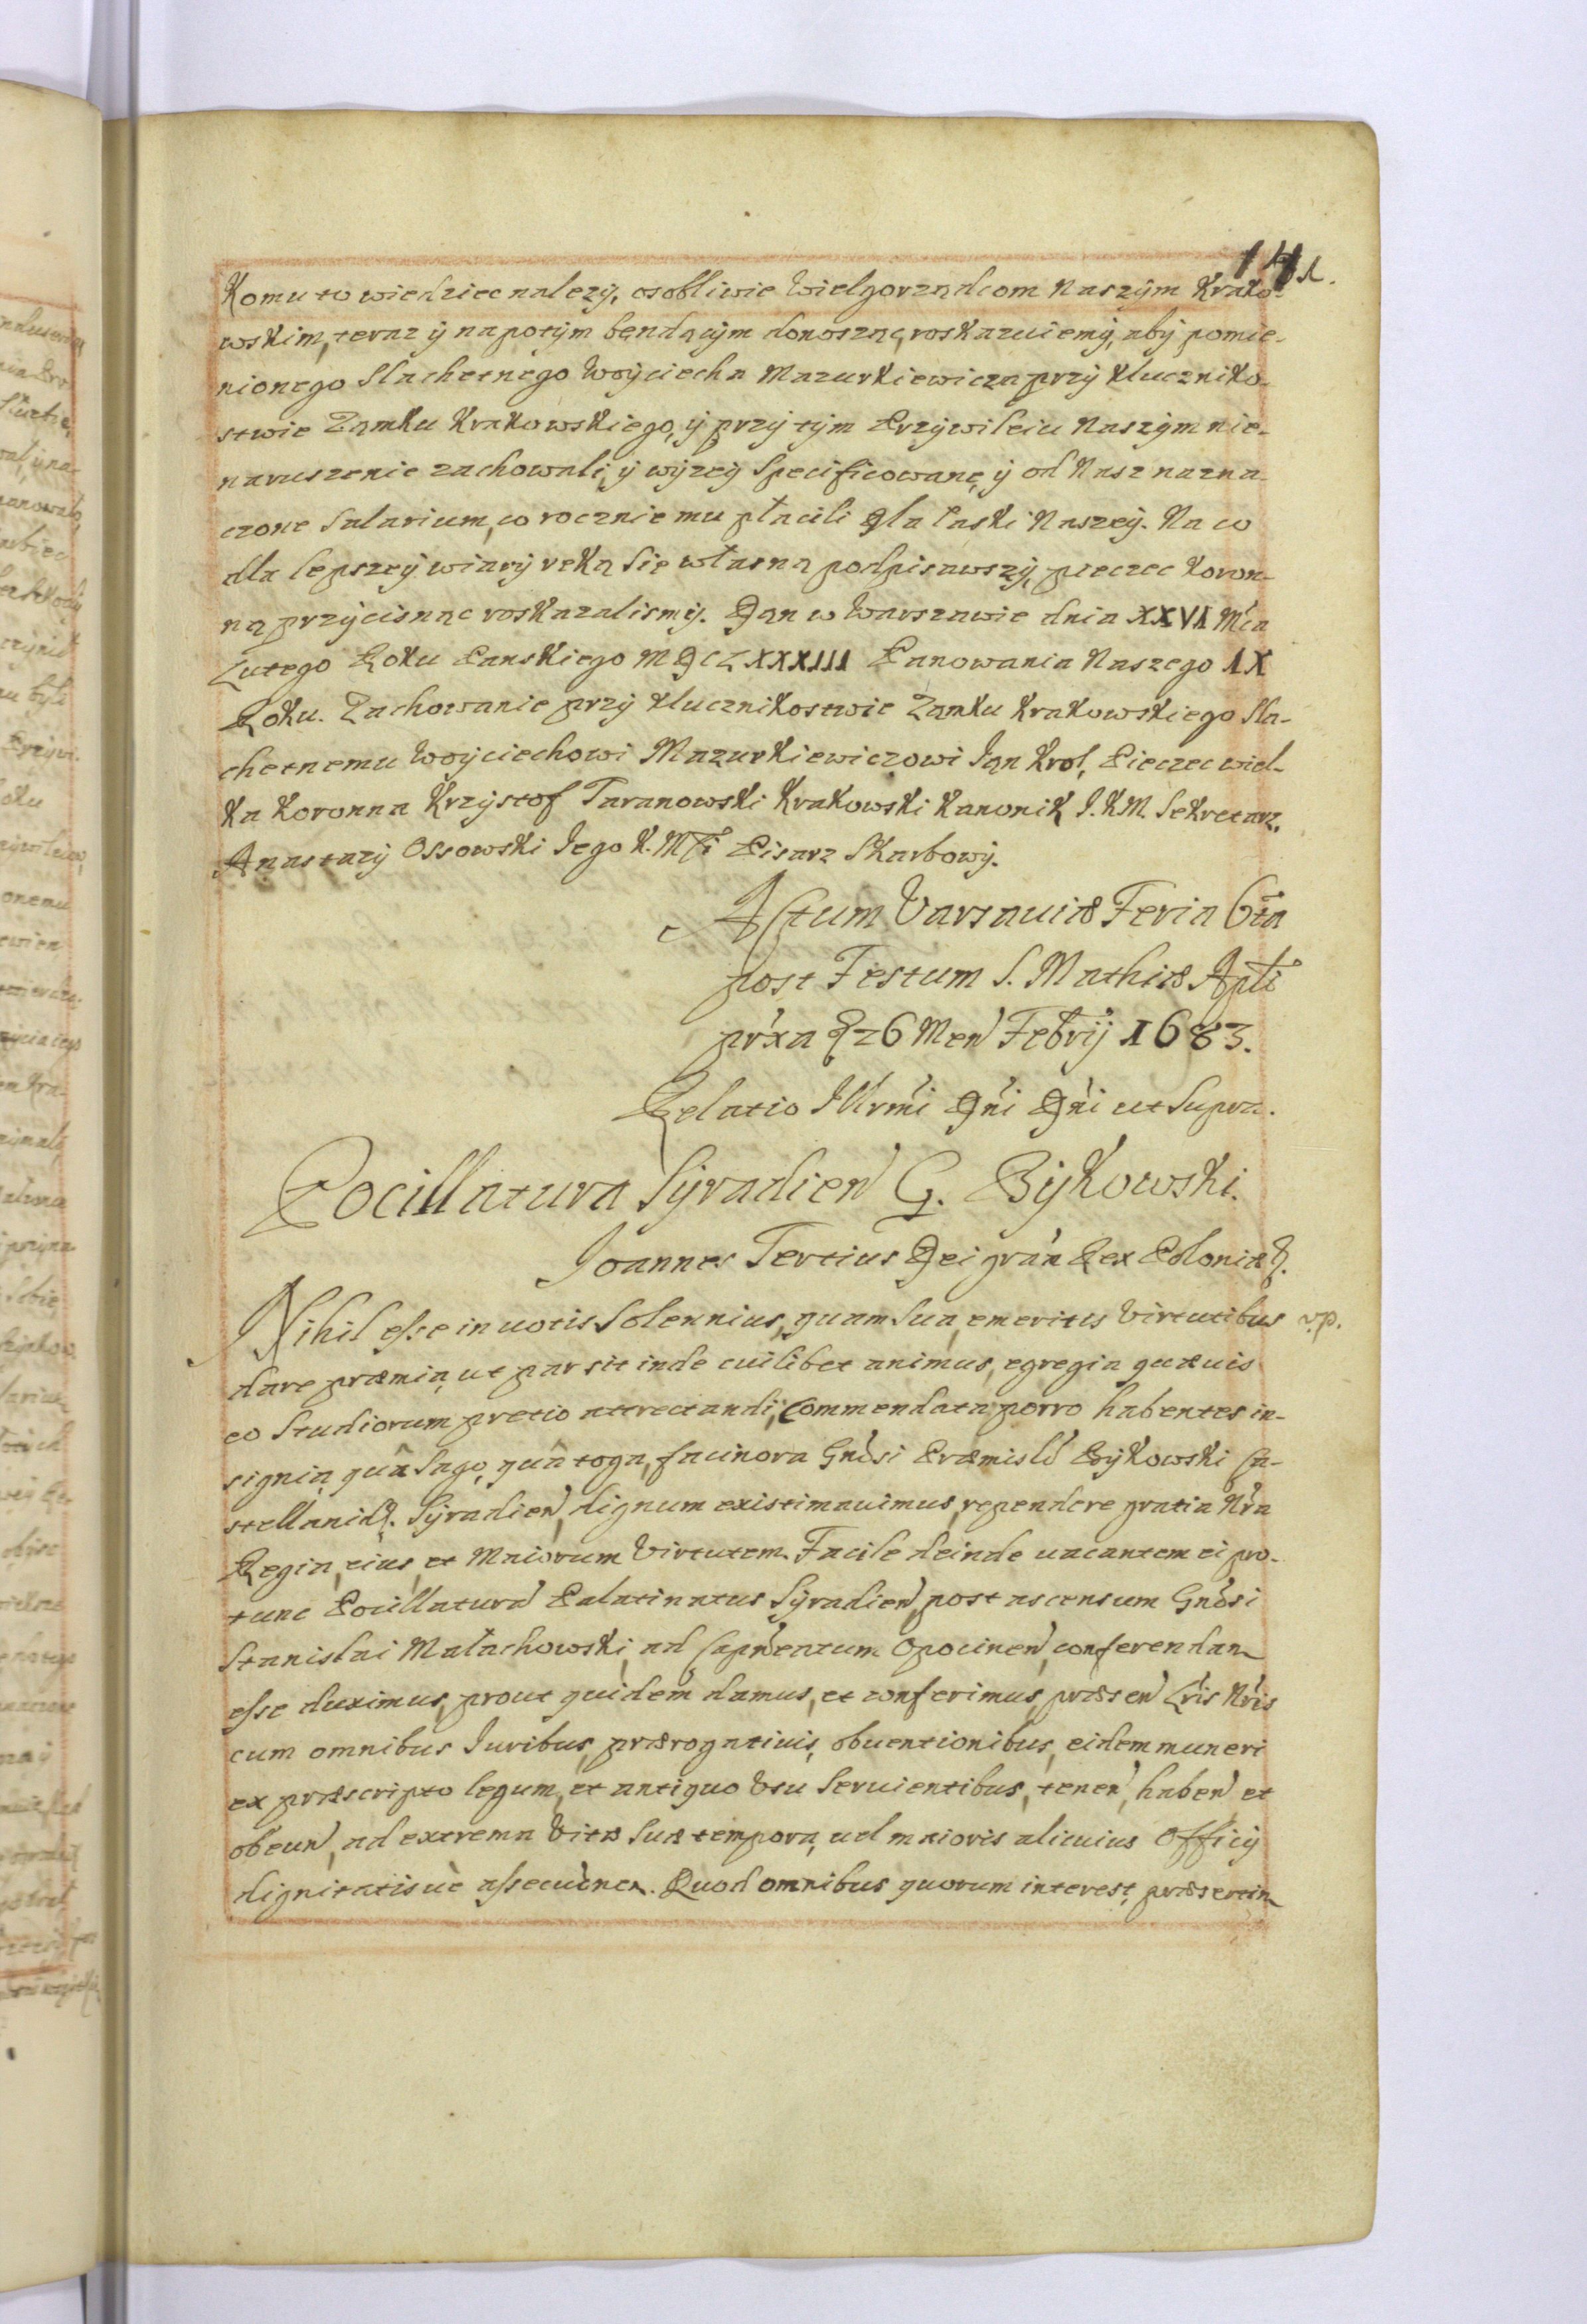 141.
Komu to wiedziec nalezy, osobliwie Wielgorządcom Naszym Krako-
wskim, teraz ÿ napotÿm będącÿm donosząc, roskazuiemÿ, abÿ pomie-
nionego Slachetnego Woÿciecha Mazurkiewicza przÿ kluczniko-
stwie Zamku Krakowskiego, ÿ przÿ tÿm Przÿwileiu Naszÿm nie-
naruszenie zachowali, ÿ wÿzeÿ Specificowane, ÿ od Nasz nazna-
czone Salarium, co rocznie mu płacili dla łaski Naszeÿ. Na co
dla lepszeÿ wiarÿ ręką Się własną podpisawszÿ, pieczec koron-
ną przÿcisnąc roskazalismÿ. Dan w Warszawie dnia XXVI Mca
Lutego Roku Panskiego MDCLXXXIII Panowania Naszego IX
Roku. Zachowanie przÿ klucznikostwie Zamku Krakowskiego Sla-
chetnemu Woÿciechowi Mazurkiewiczowi Jan Krol, Pieczec wiel-
ka koronna Krzÿstof Taranowski Krakowski Kanonik J. K M. Sekretarz.
Anastazÿ Ossowski Jego K. Mści Pisarz Skarbowÿ.
Actum Varsauiæ Feria 6ta
post Festum S. Mathiæ Apli
pr'xa & 26 Men Febrÿ 1683.
Relatio Illrmi Dni Dni ut Supra.
Pocillatura Sÿradien G. Bÿkowski.
Joannes Tertius Dei gra'n Rex Poloniæ &.
Nihil esse in uotis Solennius, quam Sua emeritis Virtutibus
v.p.
dare præmia, ut par sit inde cuilibet animus, egregia quæuis
eo Studiorum pretio attrectandi, Commendata porro habentes in-
signia, quâ Sago, quâ toga, facinora Gnosi Præmisli Bÿkowski Ca-
stellanid. Sÿradien, dignum existimauimus, rependere gratia Nra
Regia, eius, et Maiorum Virtutem. Facile deinde uacantem ei pro-
tunc Pocillatura Palatinatus Sÿradien, post ascensum Gnosi
Stanislai Małachowski, ad Capneatum Opocinen, conferendam
esse duximus, prout quidem damus, et conferimus, præsen Lris Nris
cum omnibus Iuribus, prærogatiuis, obuentionibus, eidem muneri
ex præscripto legum, et antiquo Vsu Seruientibus, tenen, haben et
obeun, ad extrema Vitæ Suæ tempora, uel maioris alicuius Officÿ
dignitatisuè assecuonem. Quod omnibus quorum interest, præsertim